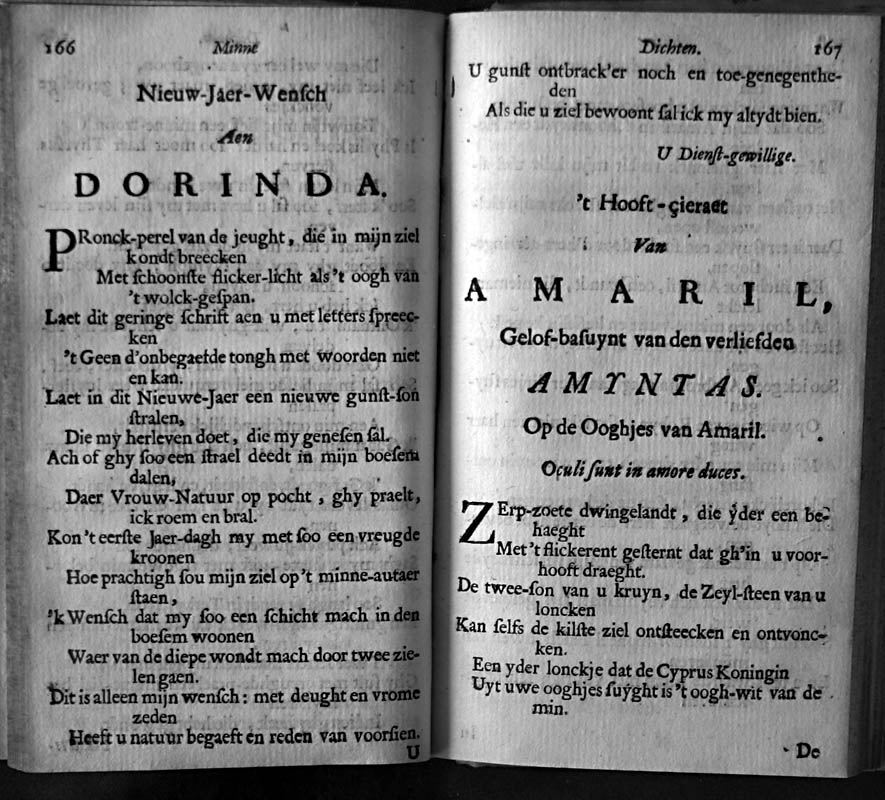 166 Minne
Nieuw-Jaer-Wenſch
Aen
DORINDA.
PRonck-perel van de jeught, die in mijn ziel
kondt breecken
Met ſchoonſte flicker-licht als 't oogh van
't wolck-geſpan.
Laet dit geringe ſchrift aen u met letters ſpreec-
ken
't Geen d'onbegaefde tongh met woorden niet
en kan.
Laet in dit Nieuwe-Jaer een nieuwe gunſt-ſon
ſtralen,
Die my herleven doet, die my geneſen ſal.
Ach of ghy ſoo een ſtrael deedt in mijn boeſem
dalen,
Daer Vrouw-Natuur op pocht, ghy praelt,
ick roem en bral.
Kon 't eerſte Jaer-dagh my met ſoo een vreugde
kroonen
Hoe prachtigh ſou mijn ziel op 't minne-autaer
ſtaen,
'k Wenſch dat my ſoo een ſchicht mach in den
boeſem woonen
Waer van de diepe wondt mach door twee zie-
len gaen.
Dit is alleen mijn wenſch: met deught en vrome
zeden
Heeft u natuur begaeft en reden van voorſien.
U
Dichten. 167
U gunſt ontbrack'er noch en toe-genegenthe-
den
Als die u ziel bewoont ſal ick my altydt bien.
U Dienſt-gewillige.
't Hooft-çieraet
Van
AMARIL,
Gelof-baſuynt van den verliefden
AMYNTAS.
Op de Ooghjes van Amaril.
Oculi ſunt in amore duces.
ZErp-zoete dwingelandt, die ÿder een be-
haeght
Met 't flickerent geſternt dat gh'in u voor-
hooft draeght.
De twee-ſon van u kruyn, de Zeyl-ſteen van u
loncken
Kan ſelfs de kilſte ziel ontſteecken en ontvonc-
ken.
Een yder lonckje dat de Cyprus Koningin
Uyt uwe ooghjes ſuÿght is 't oogh-wit van de
min.
De